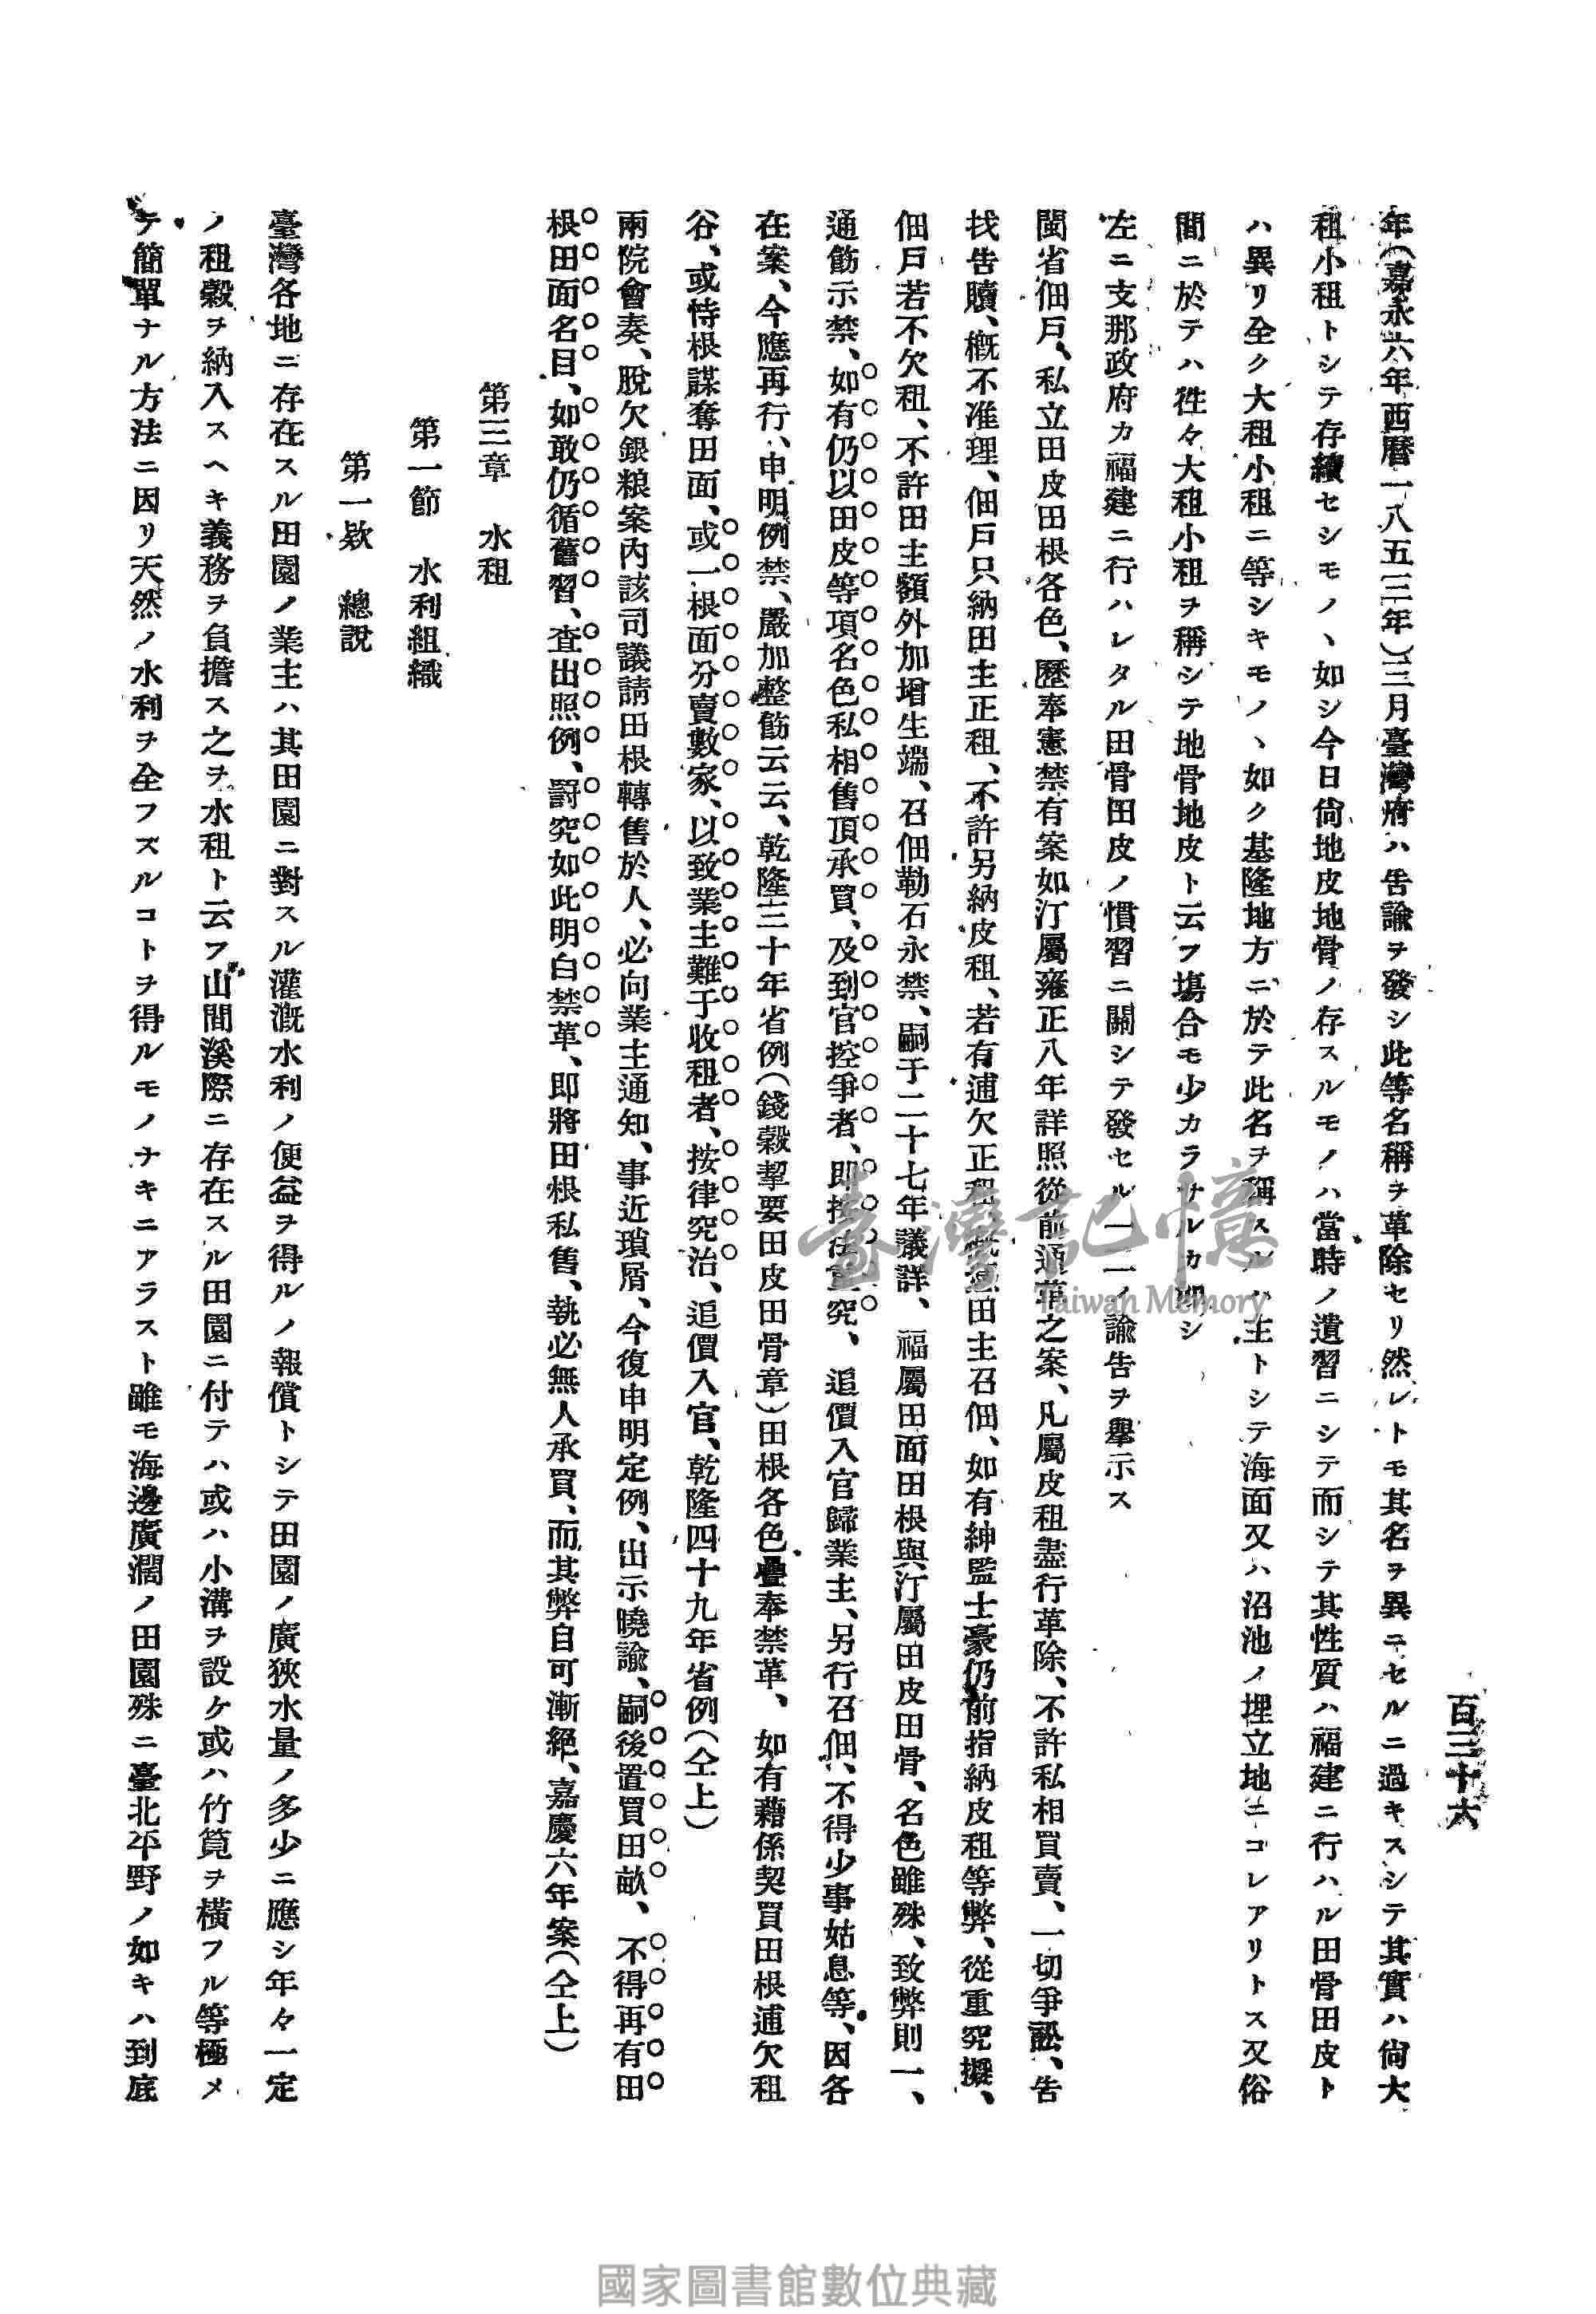 百三十六
年(嘉永六年西曆一八五三年)三月臺灣府ハ告諭ヲ發シ此等名稱ヲ革除セリ然レトモ其名ヲ異ニセルニ過キスシテ其實ハ尙大
租小租トシテ存續セシモノヽ如シ今日尙地皮地骨ノ存スルモノハ當時ノ遺習ニシテ而シテ其性質ハ福建ニ行ハル田骨田皮ト
ハ異リ全ク大租小租ニ等シキモノヽ如ク基隆地方ニ於テ此名ヲ稱スルハ主トシテ海面又ハ沼池ノ埋立地ニコレアリトス又俗
間ニ於テハ徃々大租小租ヲ稱シテ地骨地皮ト云フ塲合モ少カラサルカ如シ
左ニ支那政府カ福建ニ行ハレタル田骨田皮ノ慣習ニ關シテ發セル一二ノ諭告ヲ舉示ス
閩省佃戶、私立田皮田根各色、歷奉憲禁有案如汀屬雍正八年詳照從前通革之案、凡屬皮租盡行革除、不許私相買賣、一切爭訟、告
找告贖、概不准理、佃戶只納田主正租、不許另納皮租、若有逋欠正租概憑田主召佃、如有紳監士豪仍前指納皮租等弊、從重究擬、
佃戶若不欠租、不許田主額外加增生端、召佃勒石永禁、嗣于二十七年議詳、福屬田面田根與汀屬田皮田骨、名色雖殊、致弊則一、
通飭示禁、如有仍以田皮等項名色私相售頂承買、及到官控爭者、即按法重究、追價入官歸業主、另行召佃、不得少事姑息等、因各
在案、今應再行、申明例禁、嚴加整飭云云、乾隆三十年省例(錢穀挈要田皮田骨章)田根各色疊奉禁革、如有藉係契買田根逋欠租
谷、或恃根謀奪田面、或一根面分賣數家、以致業主難于收租者、按律究治、追價入官、乾隆四十九年省例(仝上)
兩院會奏、脫欠銀粮案內該司議請田根轉售於人、必向業主通知、事近瑣屑、今復申明定例、出示曉諭、嗣後置買田畝、不得再有田
根田面名目、如敢仍循舊習、査出照例、罸究如此明白禁革、即將田根私售、執必無人承買、而其弊自可漸絕、嘉慶六年案(仝上)
第三章　水租
第一節　水利組織
第一欵　總說
臺灣各地ニ存在スル田園ノ業主ハ其田園ニ對スル灌漑水利ノ便益ヲ得ルノ報償トシテ田園ノ廣狹水量ノ多少ニ應シ年々一定
ノ租穀ヲ納入スヘキ義務ヲ負擔ス之ヲ水租ト云フ山間溪際ニ存在スル田園ニ付テハ或ハ小溝ヲ設ケ或ハ竹筧ヲ橫フル等極メ
テ簡單ナル方法ニ因リ天然ノ水利ヲ全フズルコトヲ得ルモノナキニアラスト雖モ海邊廣濶ノ田園殊ニ臺北平野ノ如キハ到底
臺灣記憶
Taiwan Memory
國家圖書館數位典藏